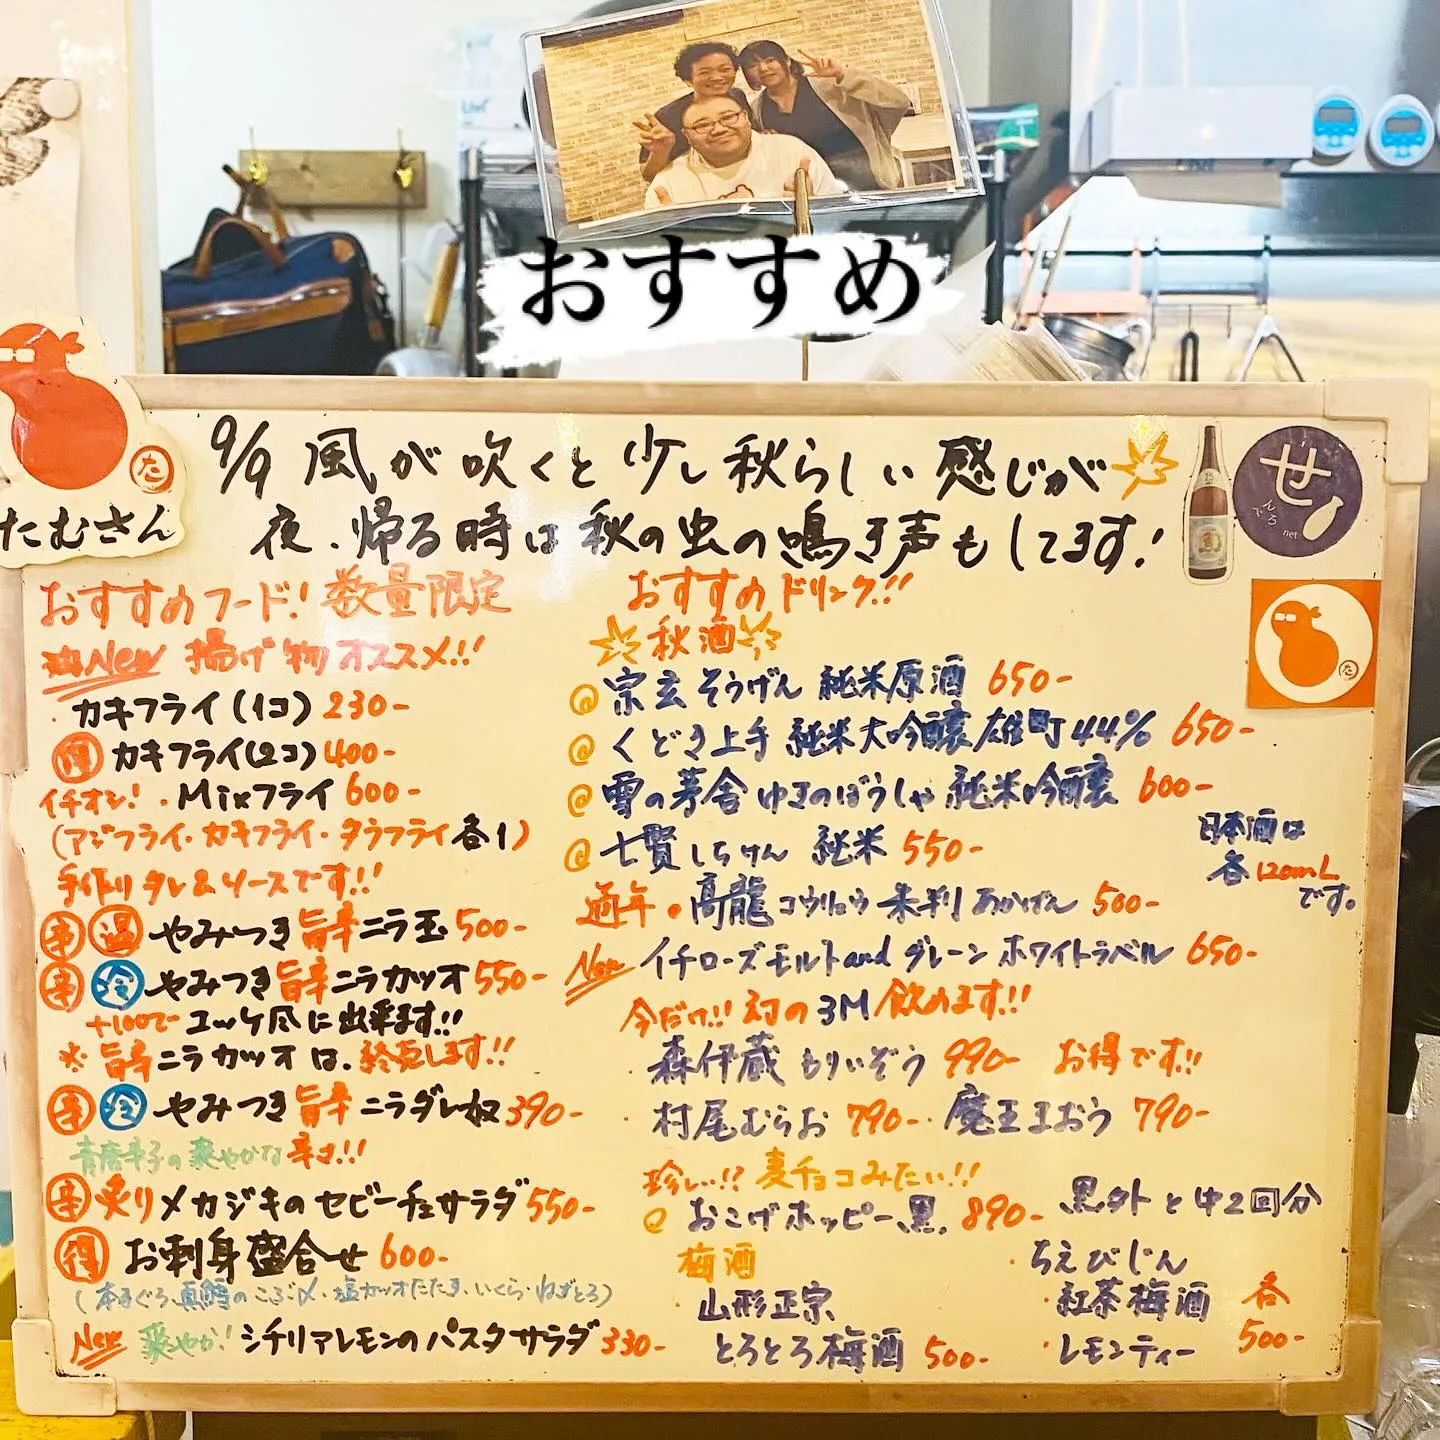 おすすめ
た
たむさん
9/9 風が吹くと少し秋らしい感じが
夜、帰る時は秋の虫の鳴き声もしてます!
せ
でんろ
net
おすすめフード! 数量限定
New 揚げ物オススメ!!
・カキフライ(1コ) 230-
得 カキフライ(2コ) 400-
イチオシ!・Mixフライ 600-
(アジフライ・カキフライ・タラフライ各1)
手作りタレ&ソースです!!
辛 温 やみつき旨辛ニラ玉 500-
辛 冷 やみつき旨辛ニラカツオ 550-
+100でユッケ風に出来ます!!
※旨辛ニラカツオは、終売します!!
辛 冷 やみつき旨辛ニラダレ奴 390-
青唐辛子の爽やかな辛さ!!
辛 炙りメカジキのセビーチェサラダ 550-
得 お刺身盛合せ 600-
(本まぐろ・真鯛のこぶ〆・塩カツオたたき・いくら・ねぎとろ)
New 爽やか!シチリアレモンのパスタサラダ 330-
おすすめドリンク!!
秋酒
@宗玄 そうげん 純米原酒 650-
@くどき上手 純米大吟醸 雄町44% 650-
@雪の茅舎 ゆきのぼうしゃ 純米吟醸 600-
@七賢 しちけん 純米 550-
日本酒は
各120mL
です。
通年・高龍 コウリュウ 朱判 あかばん 500-
New イチローズモルトand グレーン ホワイトラベル 650-
今だけ!! 幻の3M 飲めます!!
・森伊蔵 もりいぞう 990- お得です!!
・村尾 むらお 790-・魔王 まおう 790-
珍しい!? 麦チョコみたい!!
@おこげホッピー黒 890- 黒外と中2回分
梅酒
・山形正宗
とろとろ梅酒 500-
・ちえびじん
紅茶梅酒
・レモンティー
各
500-
た